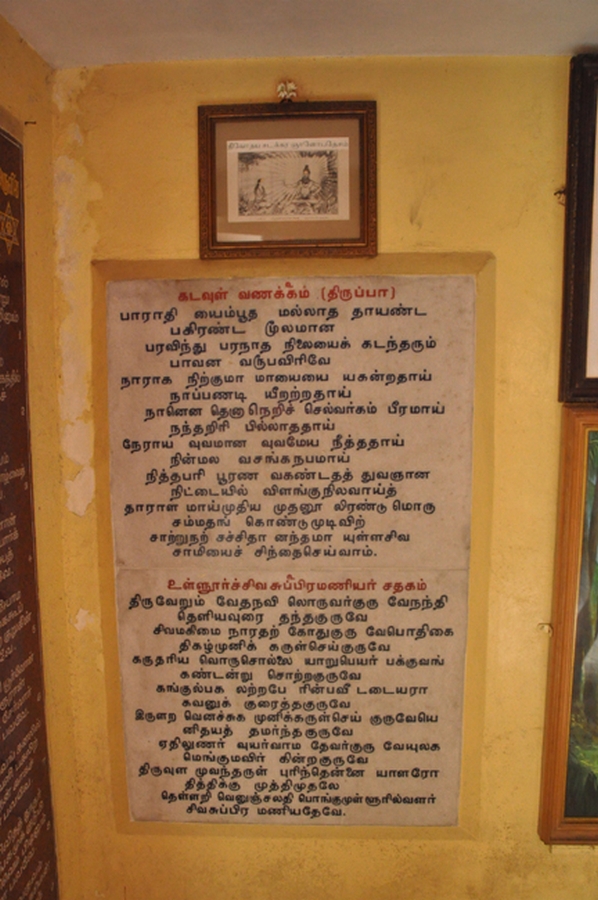 கடவுள் வணக்கம் (திருப்பா)
பாராதி யைம்பூத மல்லாத தாயண்ட
பகிரண்ட மூலமான
பரவிந்து பரநாத நிலையைக் கடந்தரும்
பாவன வருபவிரிவே
நாராக நிற்குமா மாயையை யகன்றதாய்
நாப்பணடி யீறற்றதாய்
நானென தெனாநெறிச் செல்வர்கம் பீரமாய்
நந்தறிரி பில்லாததாய்
நேராய வுவமான வுவமேய நீத்ததாய்
நின்மல வசங்கநபமாய்
நித்தபரி பூரண வகண்டதத் துவஞான
நிட்டையில் விளங்குநிலவாய்த்
தாராள மாய்முதிய முதனூ லிரண்டுமொரு
சம்மதங் கொண்டுமுடிவிற்
சாற்றுநற் சச்சிதா னந்தமா யுள்ளசிவ
சாமியைச் சிந்தைசெய்வாம்.
உள்ளூர்ச்சிவசுப்பிரமணியர் சதகம்
திருவேறும் வேதநவி லொருவர்குரு வேநந்தி
தெளியவுரை தந்தகுருவே
சிவமகிமை நாரதற் கோதுகுரு வேபொதிகை
திகழ்முனிக் கருள்செய்குருவே
கருதரிய வொருசொல்லை யாறுபெயர் பக்குவங்
கண்டன்று சொற்றகுருவே
கங்குல்பக லற்றபே ரின்பவீ டடையரா
கவனுக் குரைத்தகுருவே
இருளற வெனச்சுக முனிக்கருள்செய் குருவேயெ
னிதயத் தமர்ந்தகுருவே
ஏதிலுணர் வுயர்வாம தேவர்குரு வேயுலக
மெங்குமவிர் கின்றகுருவே
திருவுள முவந்தருள் புரிந்தென்னை யாளரோ
தித்திக்கு முத்திமுதலே
தெள்ளறி வெனுஞ்சலதி பொங்குமுள்ளூரில்வளர்
சிவசுப்பிர மணியதேவே.